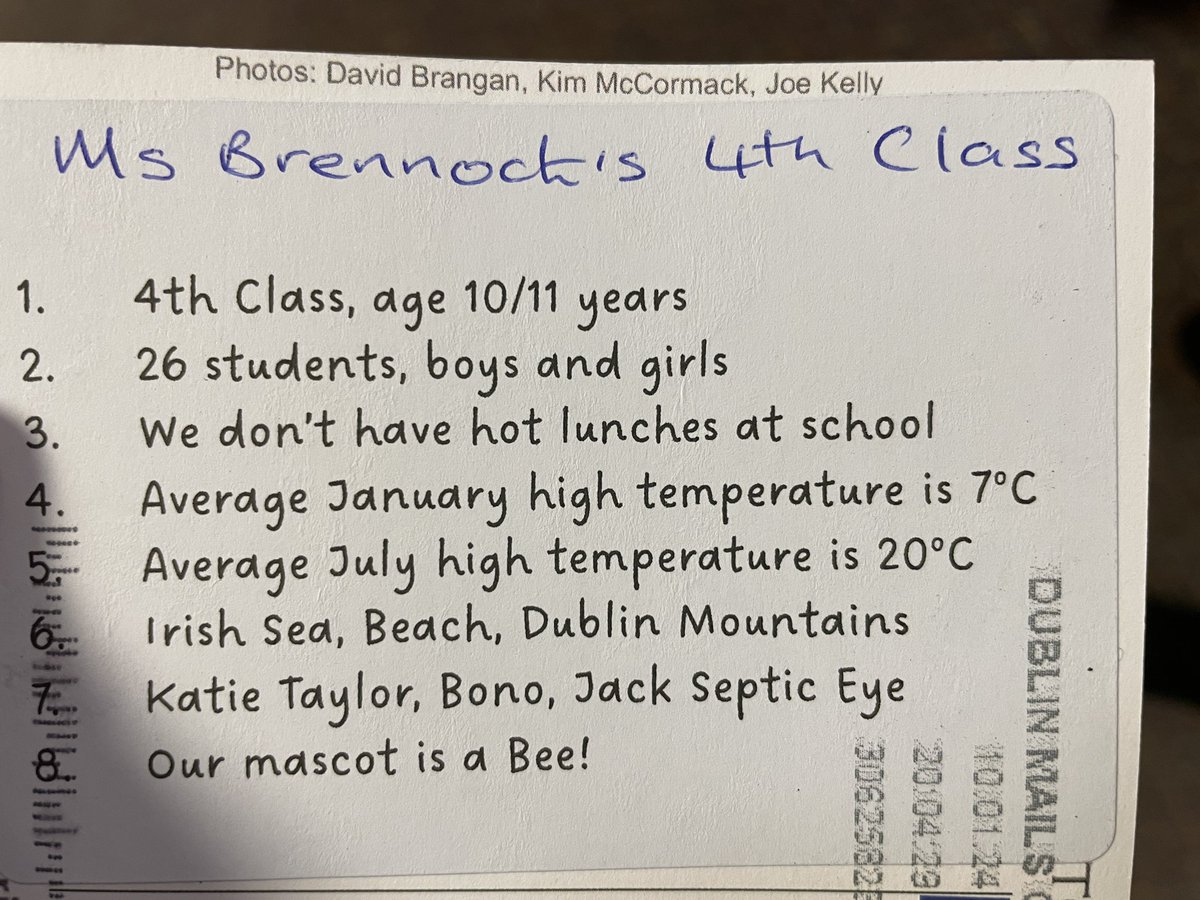 Photos: David Brangan, Kim McCormack, Joe Kelly
Ms Brennock's 4th Class
1. 4th Class, age 10/11 years
2. 26 students, boys and girls
3. We don't have hot lunches at school
4. Average January high temperature is 7°C
5. Average July high temperature is 20°C
6. Irish Sea, Beach, Dublin Mountains
7. Katie Taylor, Bono, Jack Septic Eye
8. Our mascot is a Bee!
DUBLIN MAILS
10.01.24
20:04:29
3062582